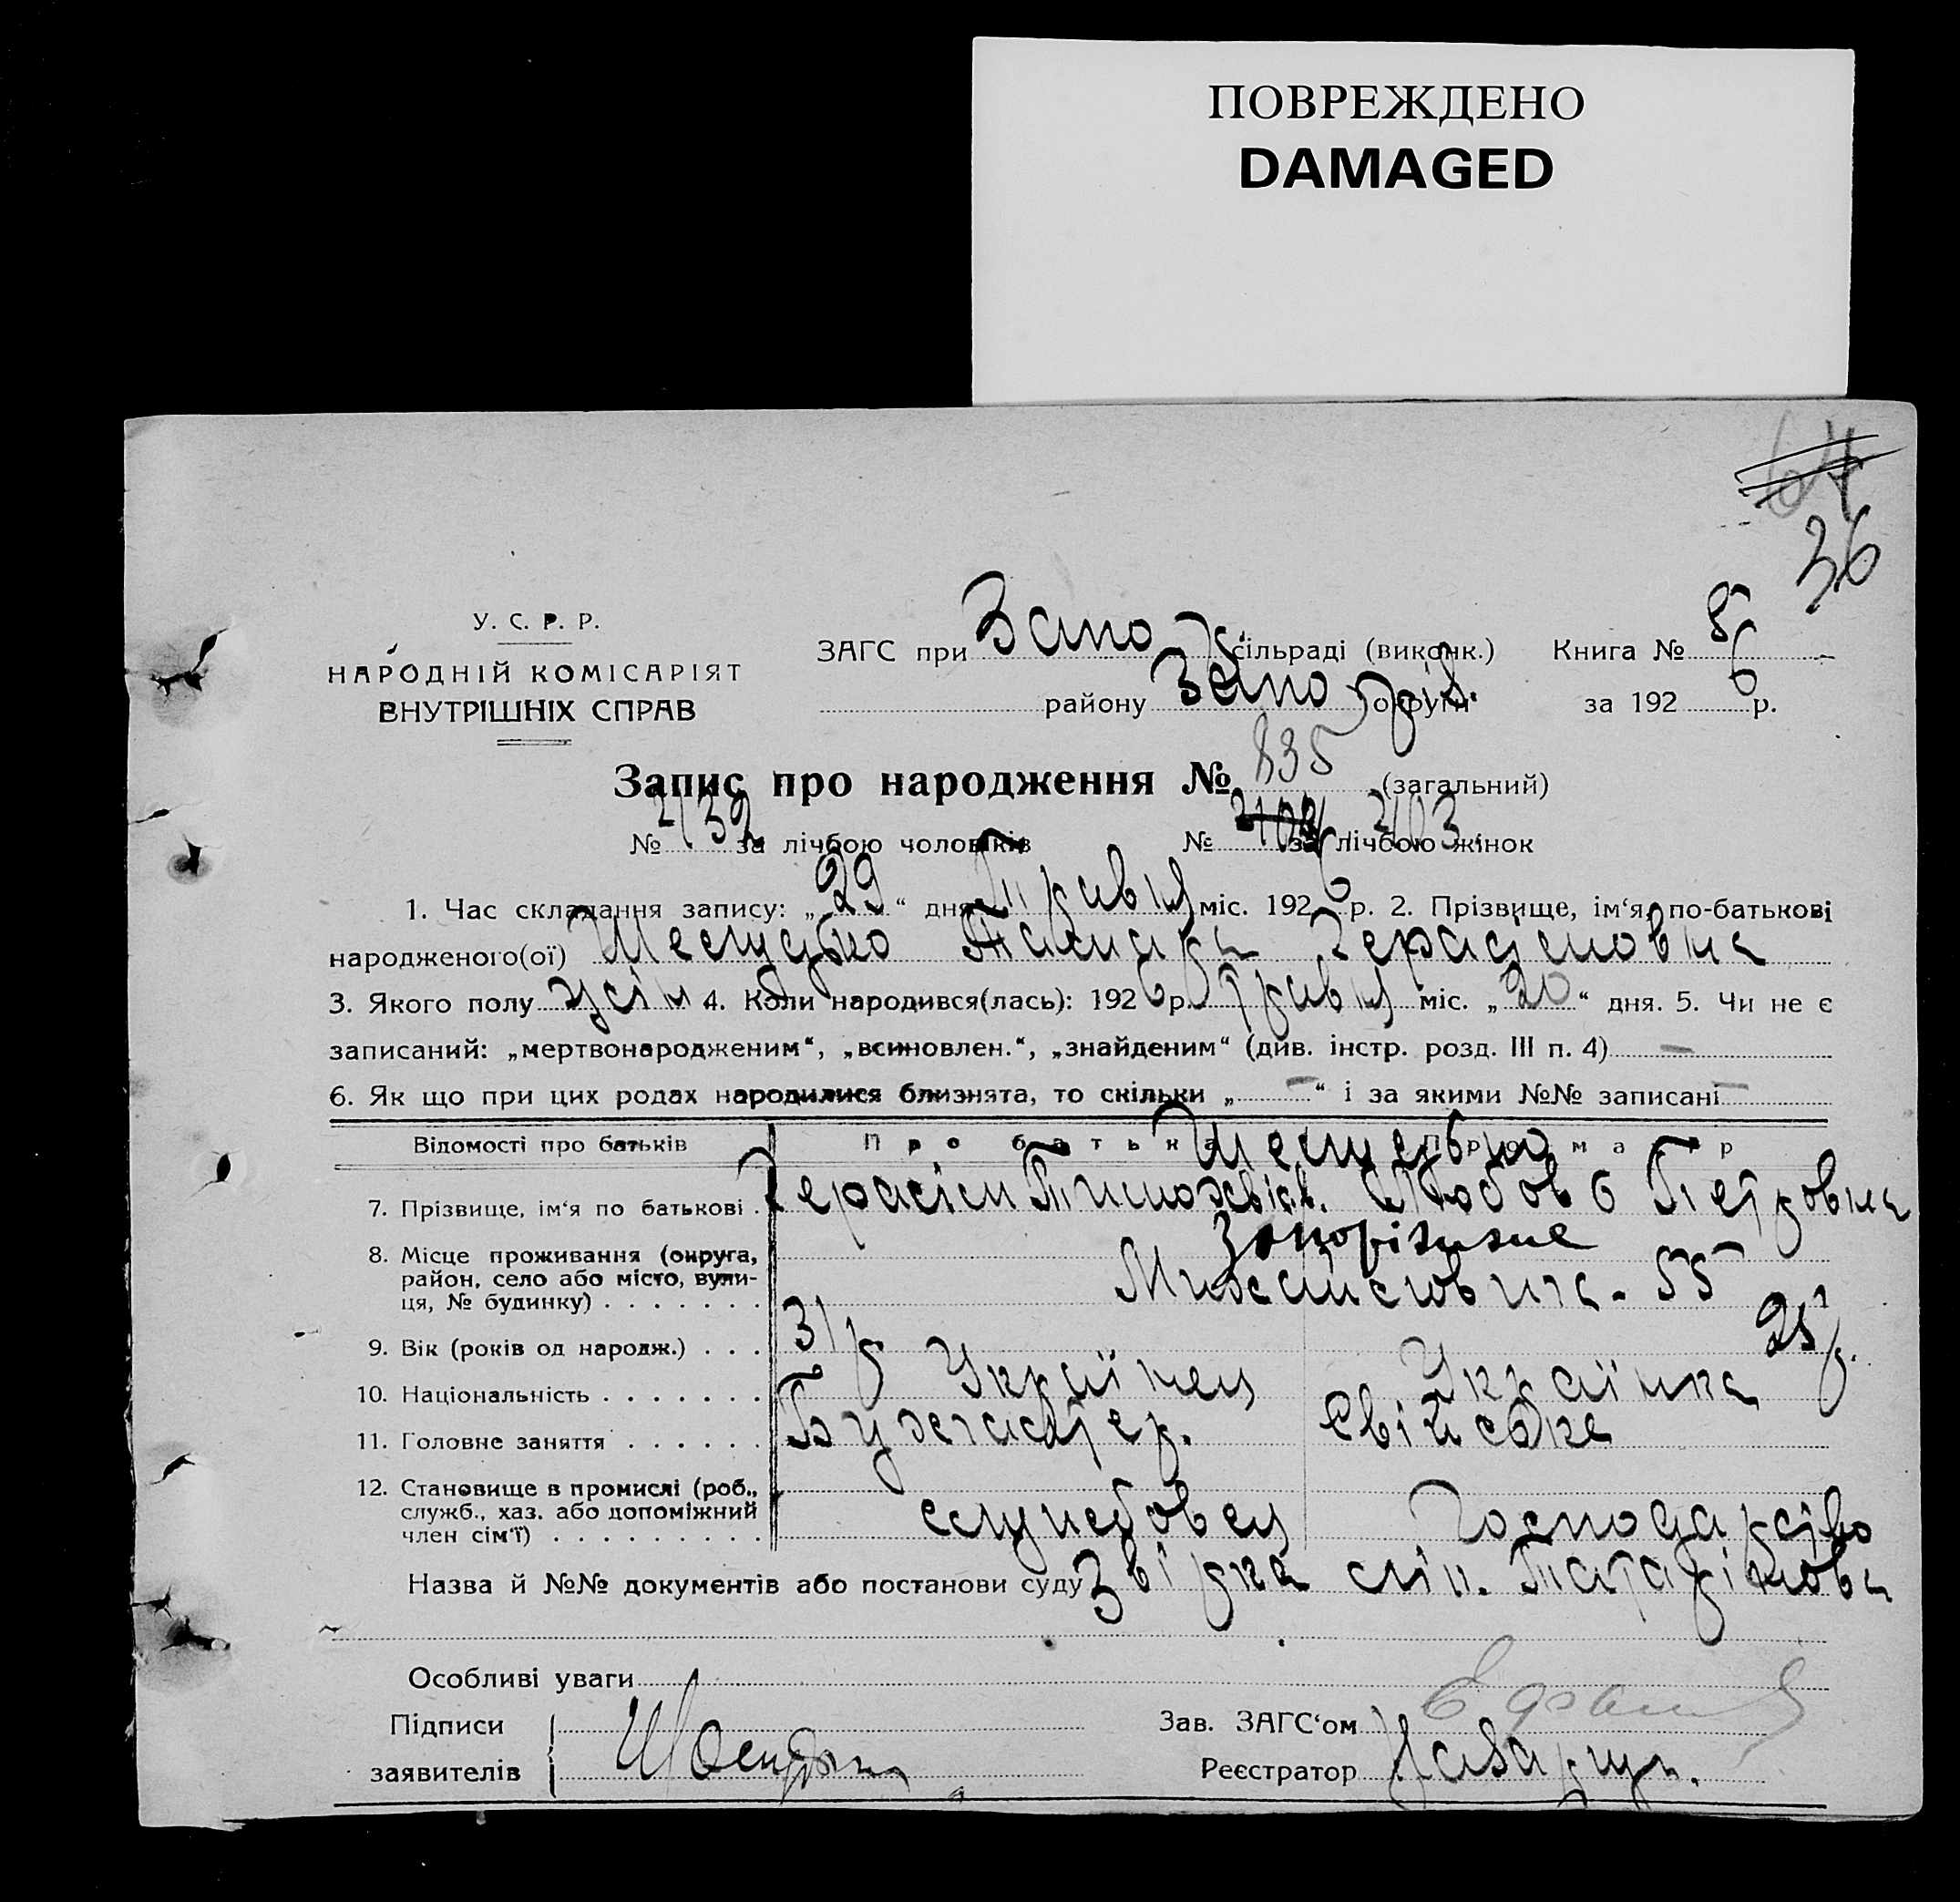 ПОВРЕЖДЕНО
DAMAGED
64
36
У. С. Р. Р.
НАРОДНІЙ КОМІСАРІЯТ
ВНУТРІШНІХ СПРАВ
ЗАГС при Запо сільраді (виконк.) Книга № 5
району Запоріз. округи за 1926 р.
Запис про народження № 835 (загальний)
№ за лічбою чоловіків № за лічбою жінок 2103
1. Час складання запису: „29“ дня Травня міс. 1926 р. 2. Прізвище, ім‘я, по-батькові
народженого(ої) Тамара Герасімовна
3. Якого полу 4. Коли народився(лась): 1926 р. Травня міс. „20“ дня. 5. Чи не є
записаний: „мертвонародженим“, „всиновлен.“, „знайденим“ (див. інстр. розд. III п. 4) —
6. Як що при цих родах народилися близнята, то скільки „—“ і за якими №№ записані —
Відомості про батьків Про батька Про матір
7. Прізвище, ім‘я по батькові Герасім Тимофєів. Любов Петровна
8. Місце проживання (округа, район, село або місто, вули-ця, № будинку) Запоріжжє
Михайловича - 55
9. Вік (років од народж.) 31 р 25 р.
10. Національність Українец Українка
11. Головне заняття Бухгалтер. Свійське
12. Становище в промислі (роб., служб., хаз. або допоміжний член сім‘ї) служебовец Господарство
Назва й №№ документів або постанови суду Звірка
Особливі уваги
Підписи
заявителів
Зав. ЗАГС‘ом
Реєстратор